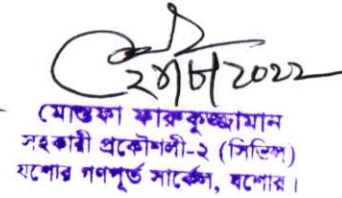 ২৮/৮/2022
মোস্তফা ফারুকুজ্জামান
সহকারী প্রকৌশলী-২ (সিভিল)
যশোর গণপূর্ত সার্কেল, যশোর।